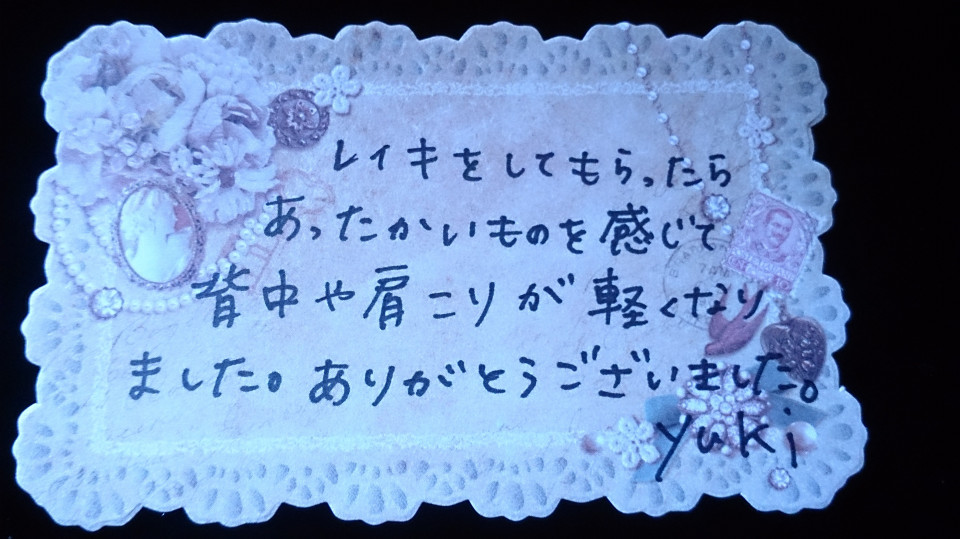 レイキをしてもらったら
あったかいものを感じて
背中や肩こりが軽くなり
ました。ありがとうございました。
yuki